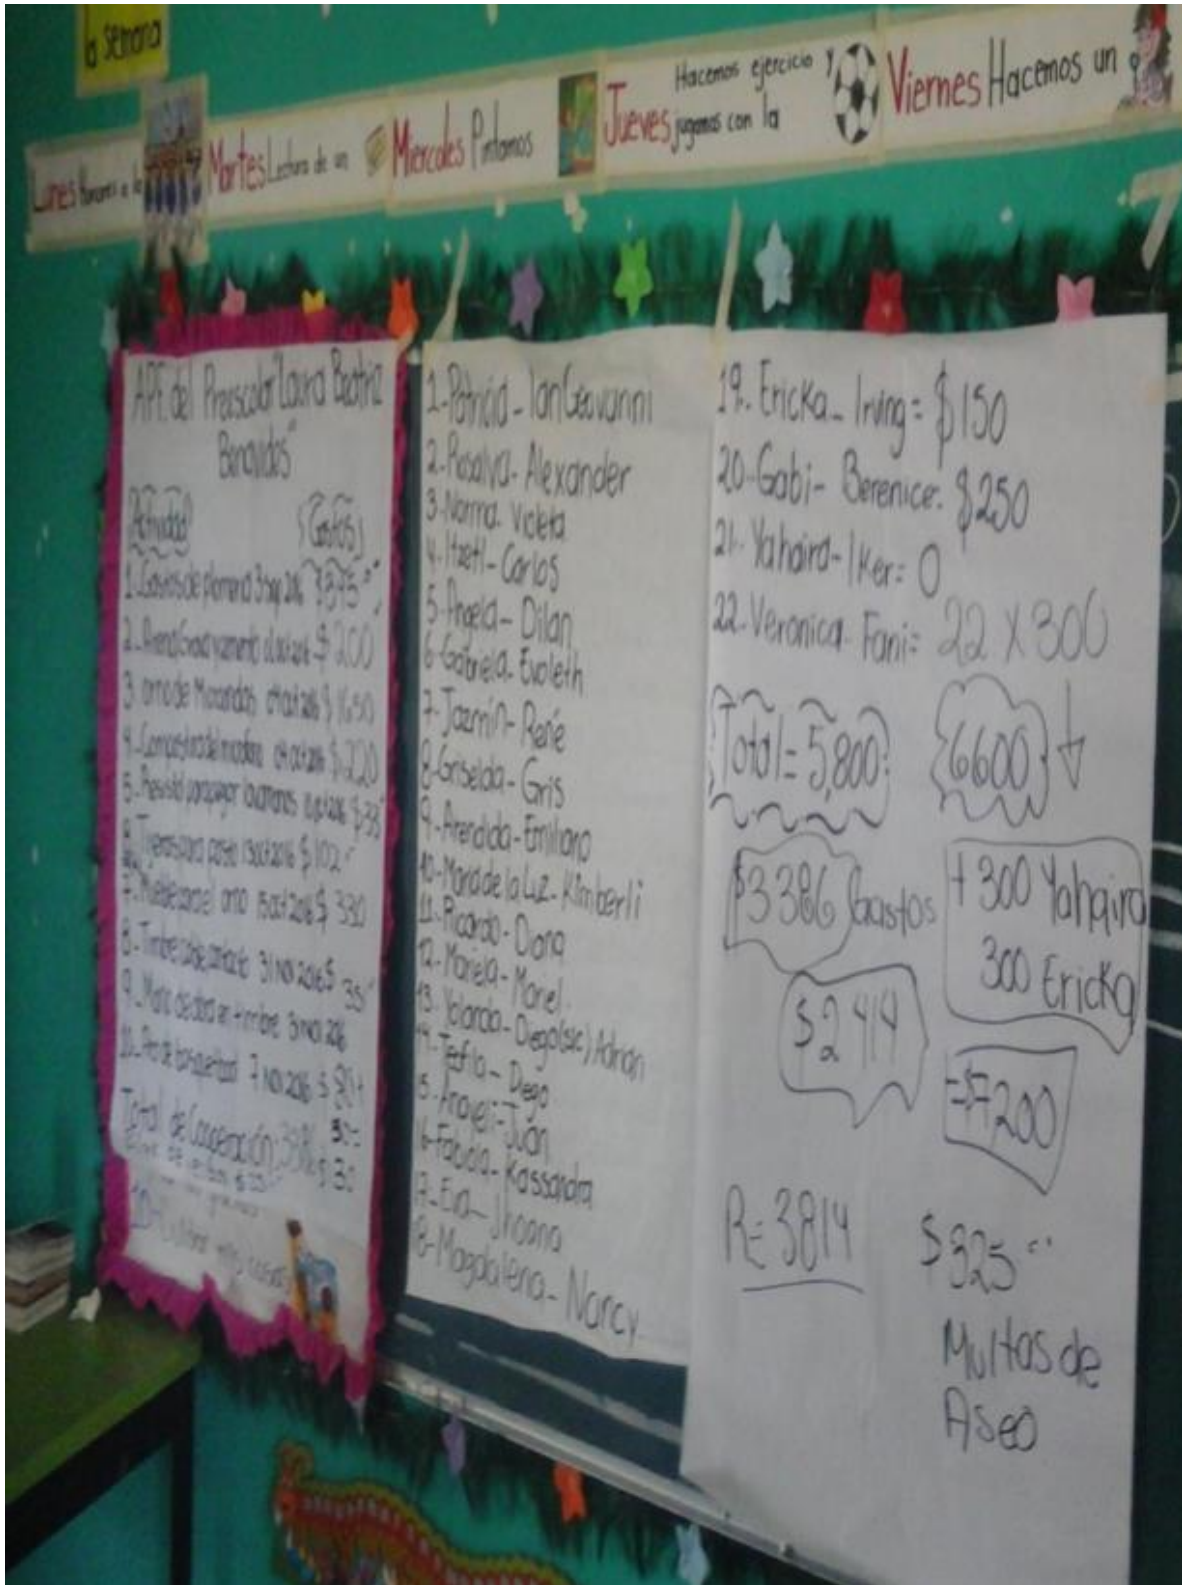 la semana
Lunes Honores a la
Martes Lectura de un
Miercoles Pintamos
Jueves Hacemos ejercicio y
jugamos con la
Viernes Hacemos un
APF del Preescolar "Laura Beatriz
Benavides"
Actividad Gastos
1.-Gastos de plomeria 2016 $375
2.-Arena Grava y cemento 2016 $200
3. 2016 $1650
4.- 2016 $220
5.-Resistol para pegar 2016 $33
6. para pasto 13 oct 2016 $102
7.- 15 oct 2016 $330
8.-Timbre cable contacto 31 Nov 2016 $ 35
9.-Mano de obra en timbre 3 nov 2016
10.- de basquetball 7 Nov 2016 $
Total de Cooperación:
1-Patricia-Ian Geovanni
2-Rosalva-Alexander
3-Norma-Violeta
4-Itzetl-Carlos
5-Angela-Dilan
6-Gabriela-Evoleth
7-Jazmín-René
8-Griselda-Gris
9-Arendida-Emiliano
10-Maria de la Luz-Kimberli
11-Ricardo-Diana
12-Mariela-Mariel.
13.-Yolanda-Diego(sic) Adrian
14-Teofila-Diego
5-Araveli-Juan
6-Fabiola-Kassandra
7-Eva-Jhoana
8-Magdalena-Narcy
19.-Ericka-Irving= $150
20-Gabi-Berenice. $250
21.-Yahaira-Iker= 0
22-Veronica-Fani= 22 X 300
Total=5,800 6600
$3386 Gastos
+300 Yahaira
300 Ericka
$2414
=$7200
R=3814
$325
Multas de
Aseo